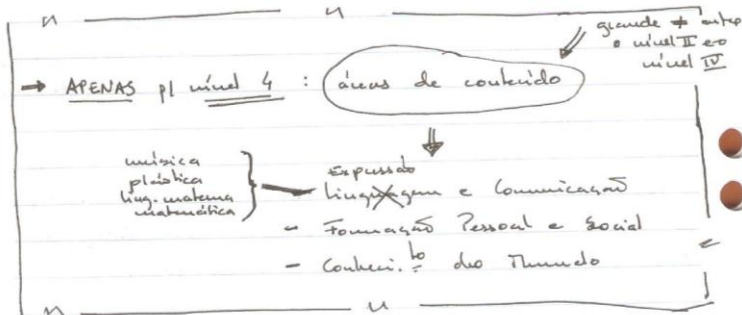 grande ≠ entre
o nível II e o
nível IV
→ APENAS p/ nível 4 : áreas de conteúdo
música
plástica
ling. materna
matemática
Expressão
- Linguagem e Comunicação
- Formação Pessoal e Social
- Conheci.to do Mundo